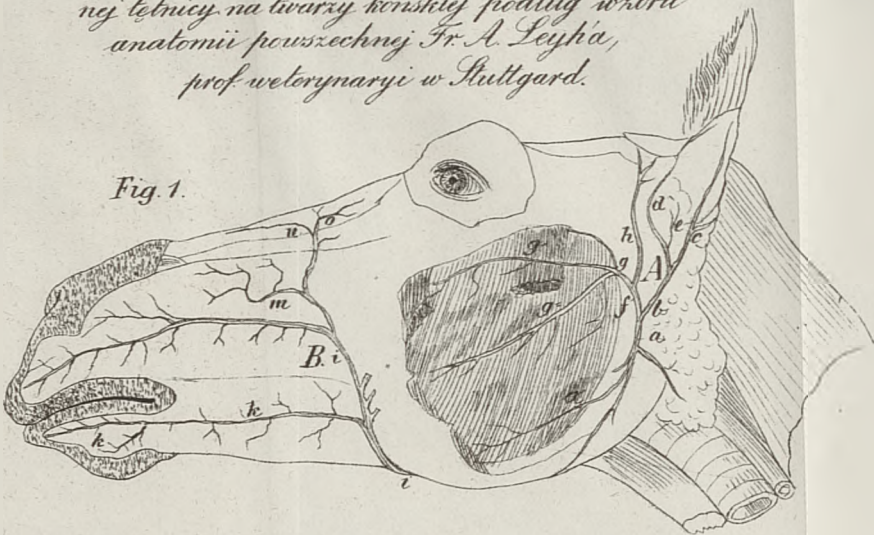 nej tętnicy na twarzy końskiej podług wzoru
anatomii powszechnej Fr. A. Leyh'a,
prof. weterynaryi w Stuttgard.
Fig. 1.
d
u o
h e c
g
g A
m
g f b
a
B. i
k a
k
i